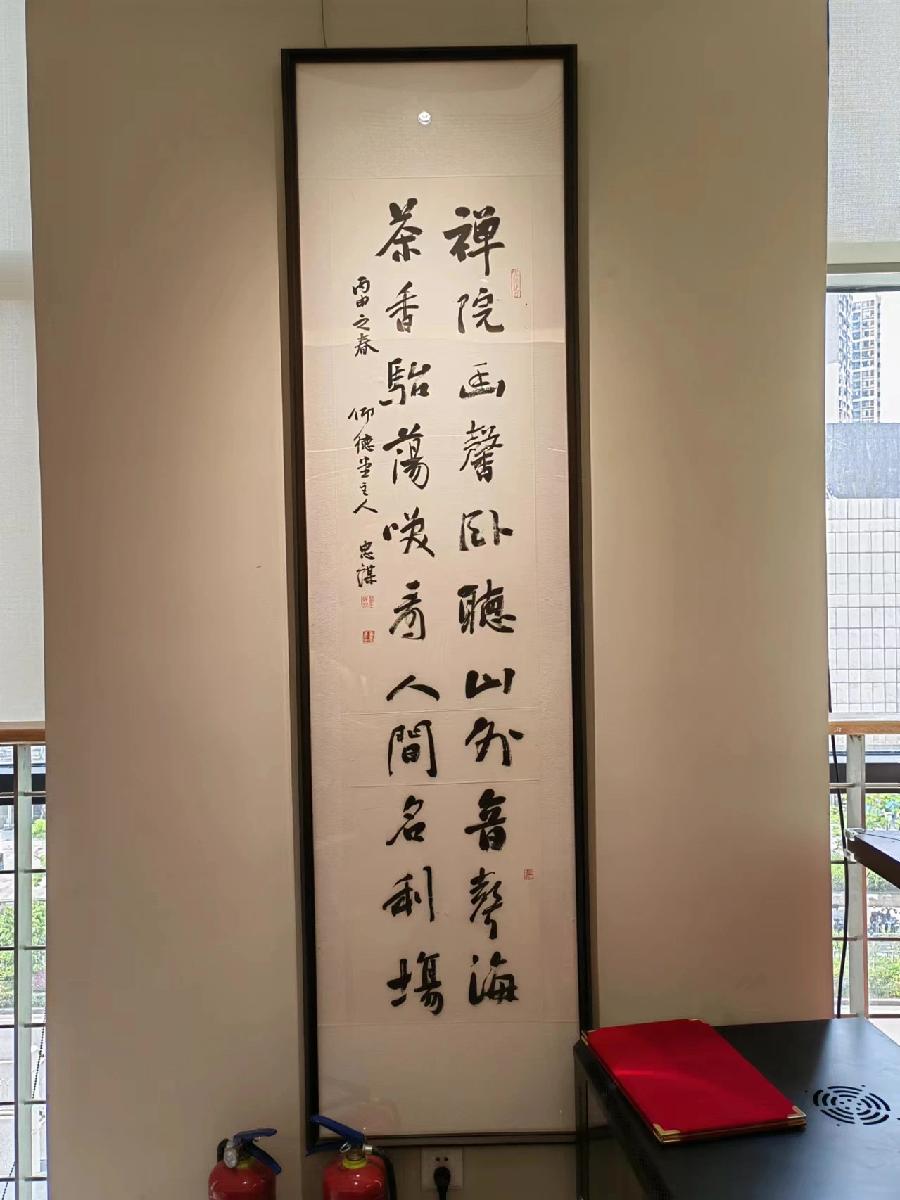 禅院幽馨卧聽山外音聲海
茶香駘蕩咲看人間名利場
丙申之春 仰德堂主人 忠謀